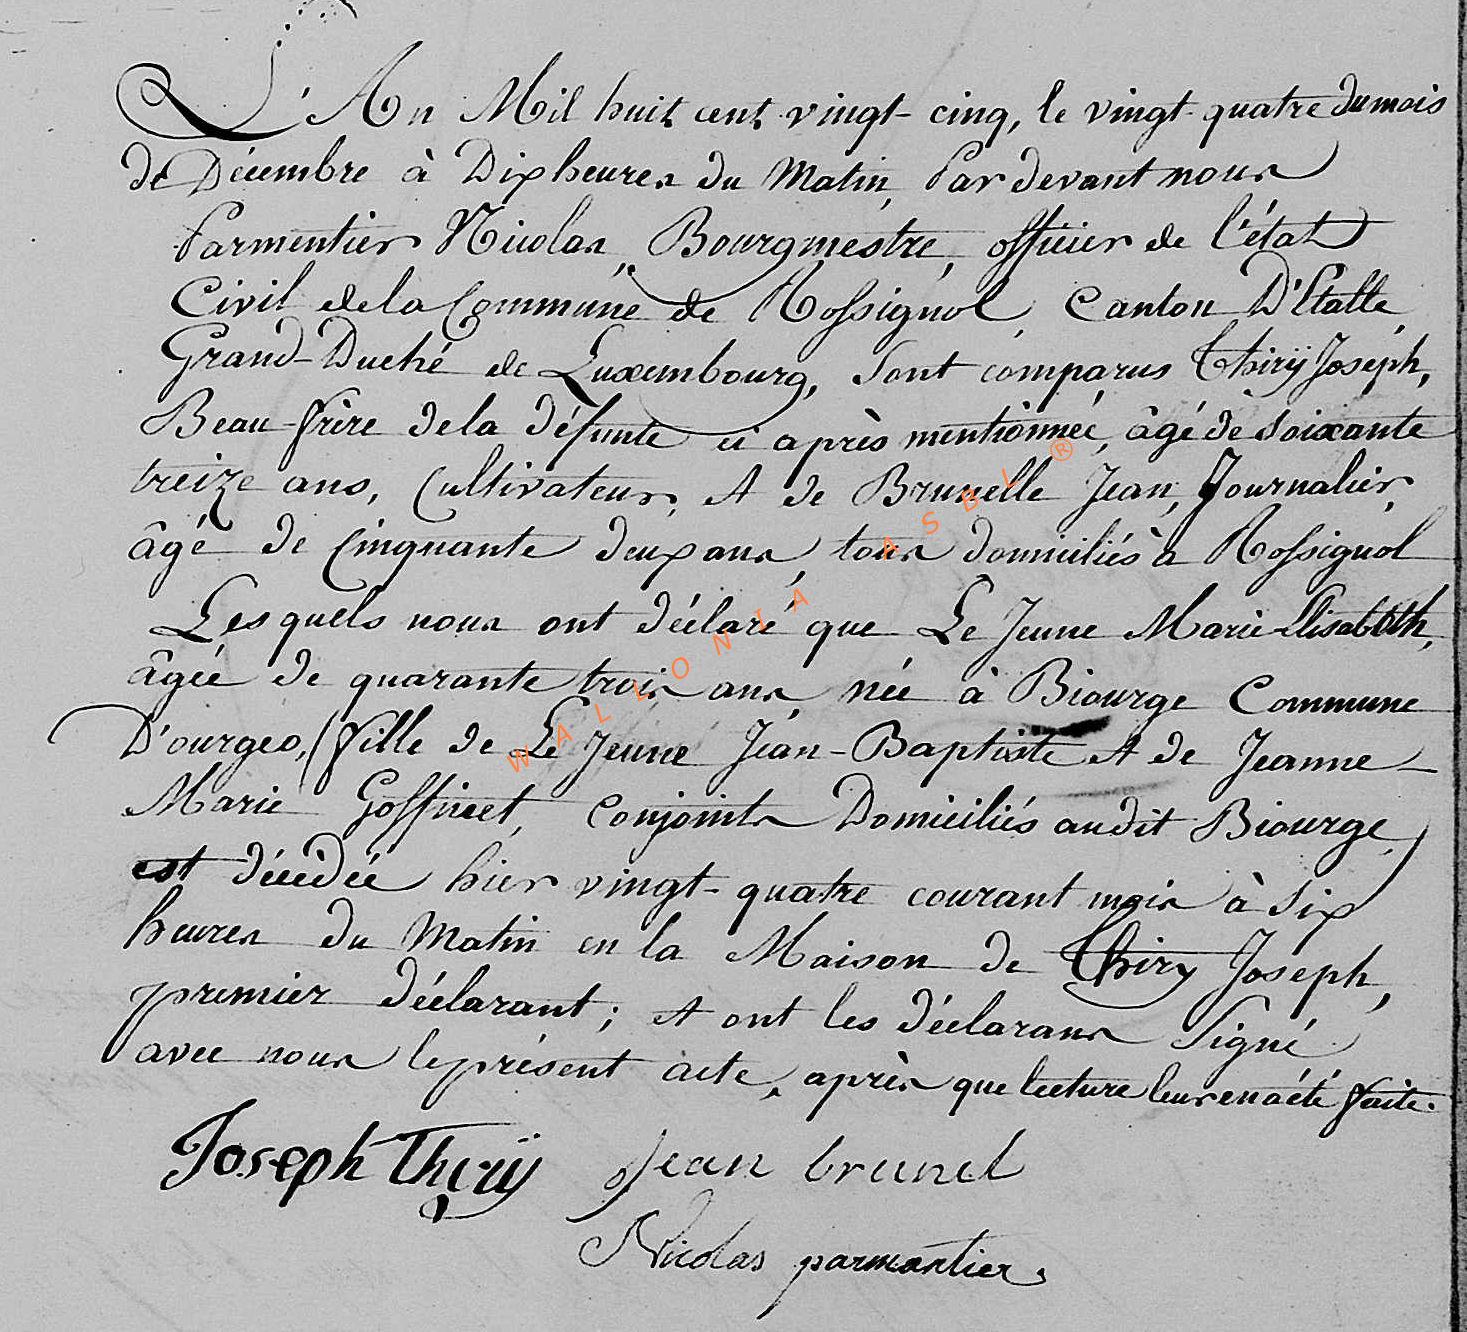 L'An Mil huit cent vingt-cinq, le vingt-quatre du mois
de Décembre à Dix heures du Matin, Par devant nous
Parmentier Nicolas, Bourgmestre, officier de l'état
Civil de la Commune de Rossignol, Canton D'Etalle,
Grand-Duché de Luxembourg, Sont comparus Thirÿ Joseph,
Beau-frère de la défunte ci après mentionnée, âgé de Soixante
treize ans, Cultivateur, et de Brunelle Jean, Journalier,
âgé de Cinquante deux ans, tous domiciliés à Rossignol
Lesquels nous ont déclaré que Le Jeune Marie Elisabeth,
âgée de quarante trois ans, née à Biourge Commune
D'ourgeo, (fille de Le Jeune Jean-Baptiste et de Jeanne-
Marie Goffinet, Conjoints Domiciliés audit Biourge,)
est décédée hier vingt-quatre courant mois à Six
heures du Matin en la Maison de Thiry Joseph,
premier déclarant; et ont les déclarans Signé
avec nous le présent acte, après que lecture leur en a été faite.
Joseph Thirÿ Jean brunel
Nicolas parmentier.
WALLONIA ASBL ®